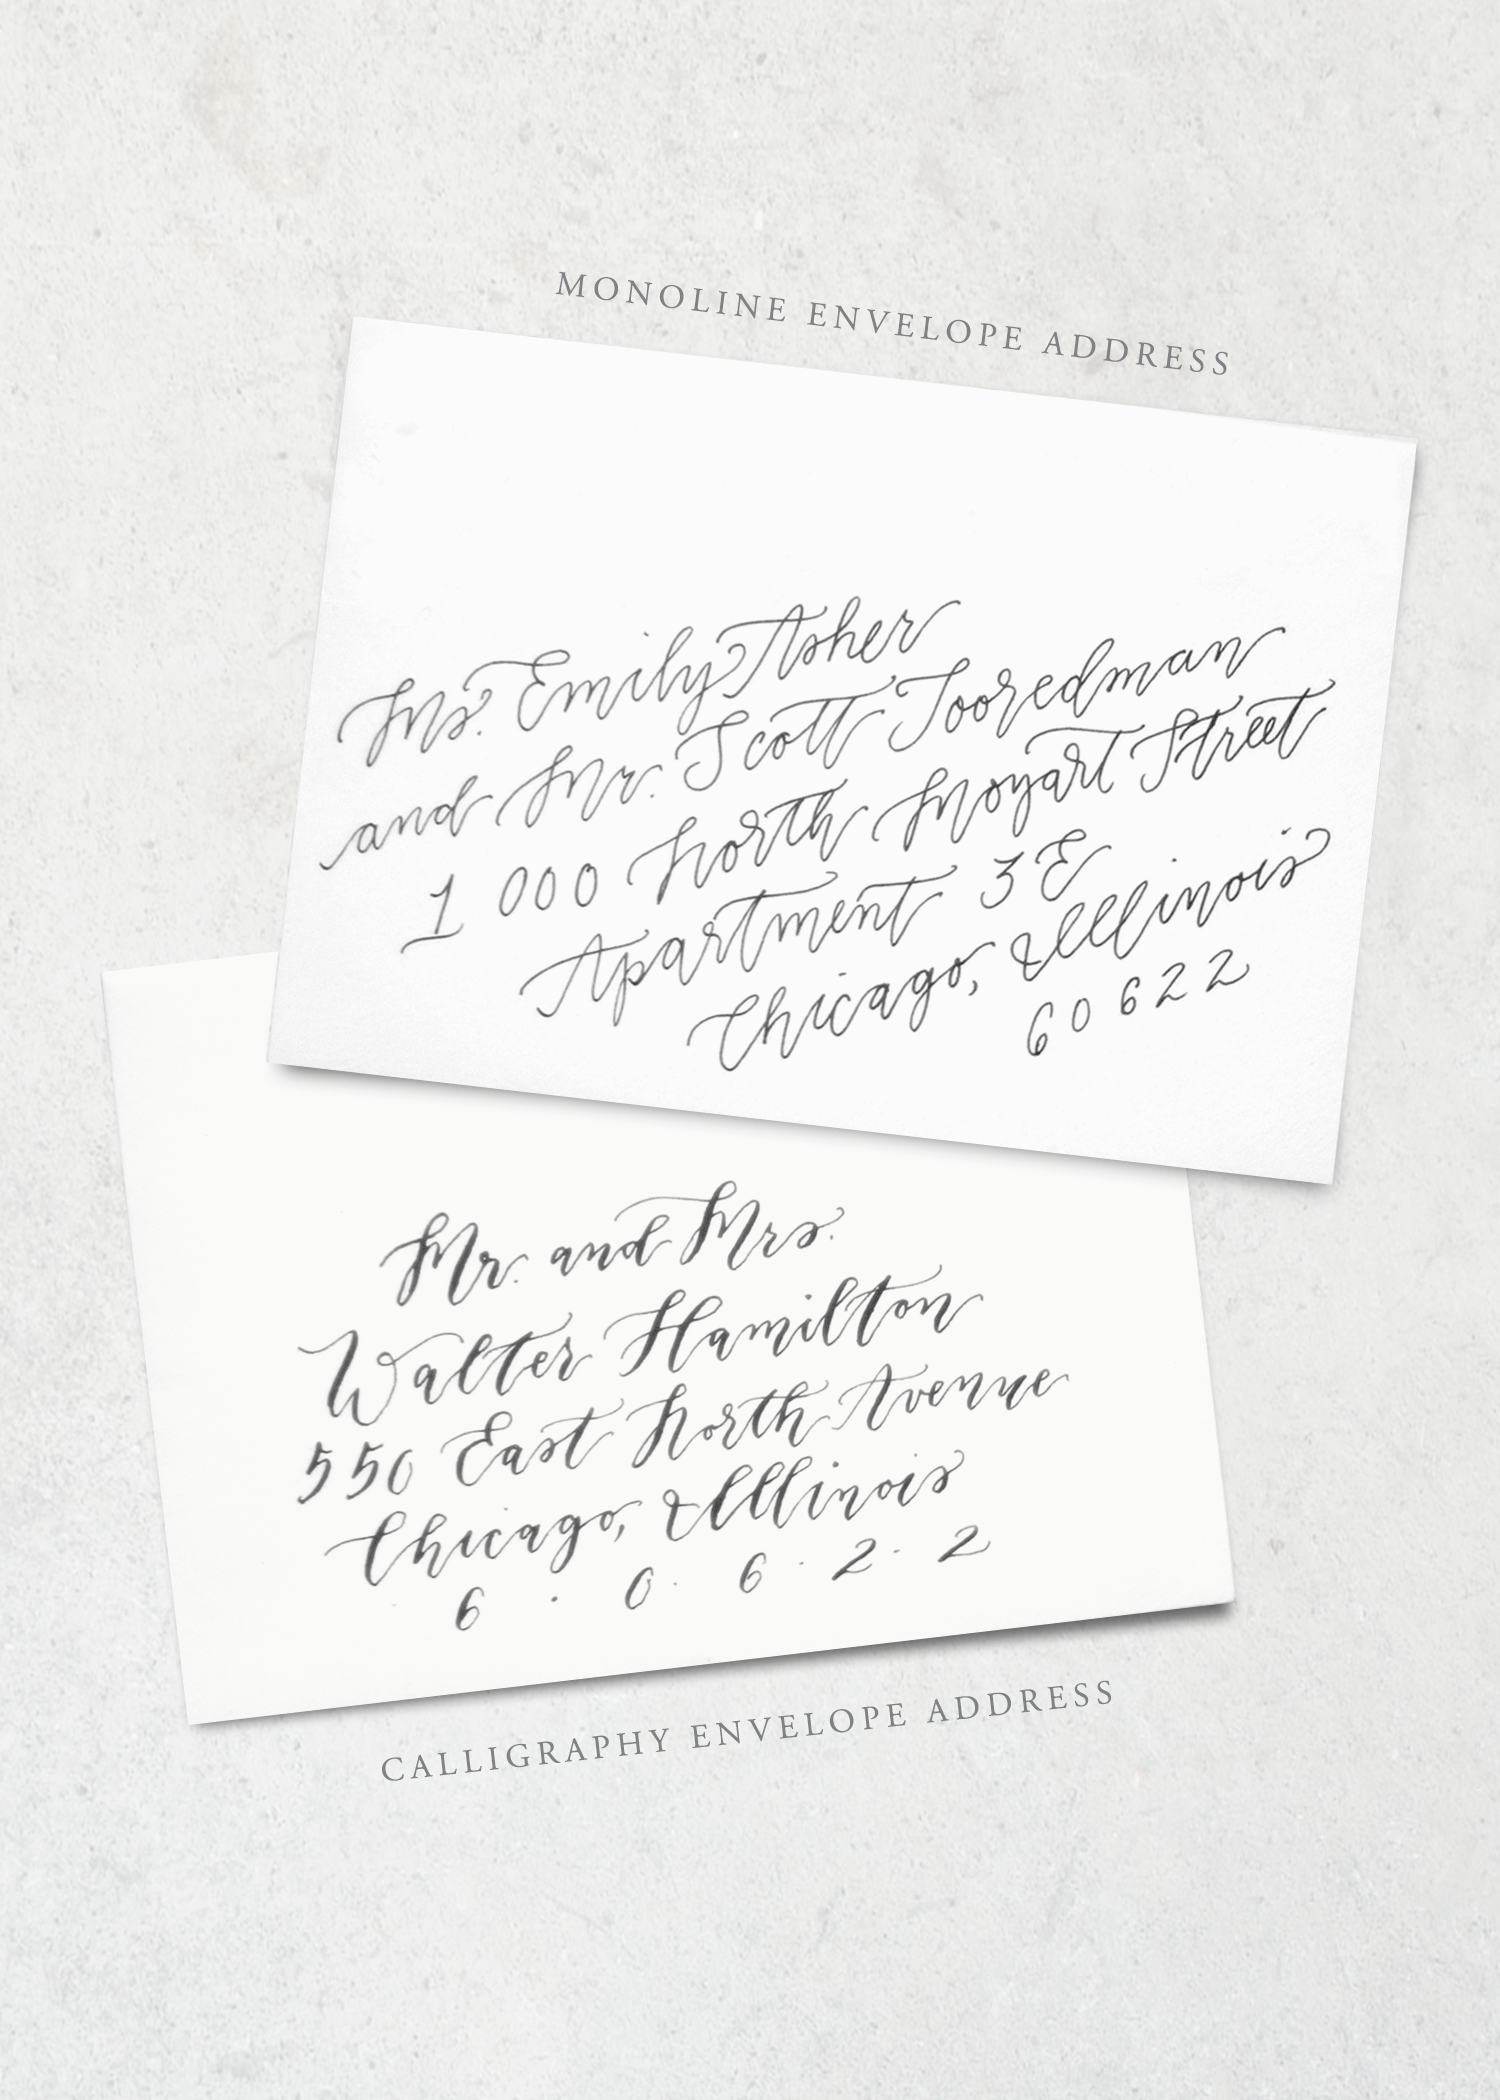 MONOLINE ENVELOPE ADDRESS
Ms. Emily Asher
and Mr. Scott Tooredman
1000 North Moyart Street
Apartment 3E
Chicago, Illinois
60622
Mr. and Mrs.
Walter Hamilton
550 East North Avenue
Chicago, Illinois
6 · 0 · 6 · 2 · 2
CALLIGRAPHY ENVELOPE ADDRESS